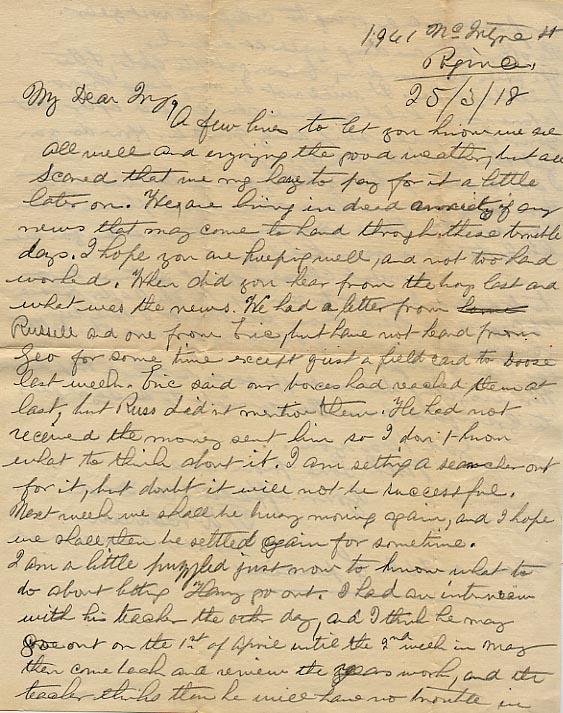 1961 McIntyre St
Regina.
25/3/18
My Dear
A few lines to let you know we are
all well and enjoying the good weather, but are
scared that we my have to pay for it a little
later on. We are living in dread anxiety of any
news that may come to hand through these terrible
days. I hope you are keeping well, and not too hard
worked. When did you hear from the boys last and
what was the news. We had a letter from
Russell and one from Eric, but have not heard from
Geo for some time except just a field card to
last week. Eric said our boxes had reached them at
last, but Russ didn't mention them. He had not
received the money sent him so I don't know
what to think about it. I am setting a searcher out
for it, but doubt it will not be successful.
Next week we shall be busy moving again, and I hope
we shall then be settled again for sometime.
I am a little puzzled just now to know what to
do about letting Harry go out. I had an interview
with his teacher the other day, and I think he may
go out on the 1st of April until the 2nd week in May
then come back and review the years work, and the
teacher thinks then he will have no trouble in